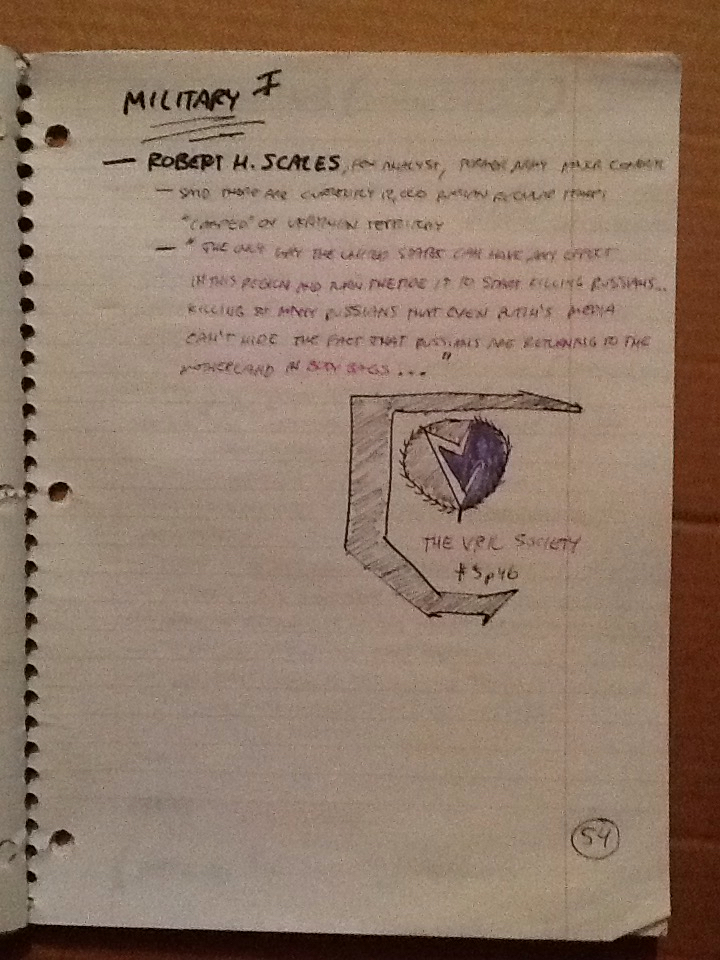 MILITARY I
— ROBERT H. SCALES, FOX ANALYST, FORMER ARMY
— SAID THERE ARE CURRENTLY 12,000 RUSSIAN REGULAR TROOPS
"CAMPED" ON UKRAINIAN TERRITORY
— "THE ONLY WAY THE UNITED STATES CAN HAVE ANY EFFECT
IN THIS REGION AND TURN THE TIDE IS TO START KILLING RUSSIANS...
KILLING SO MANY RUSSIANS THAT EVEN PUTIN'S MEDIA
CAN'T HIDE THE FACT THAT RUSSIANS ARE RETURNING TO THE
MOTHERLAND IN BODY BAGS..."
THE VRIL SOCIETY
#5 p46
54